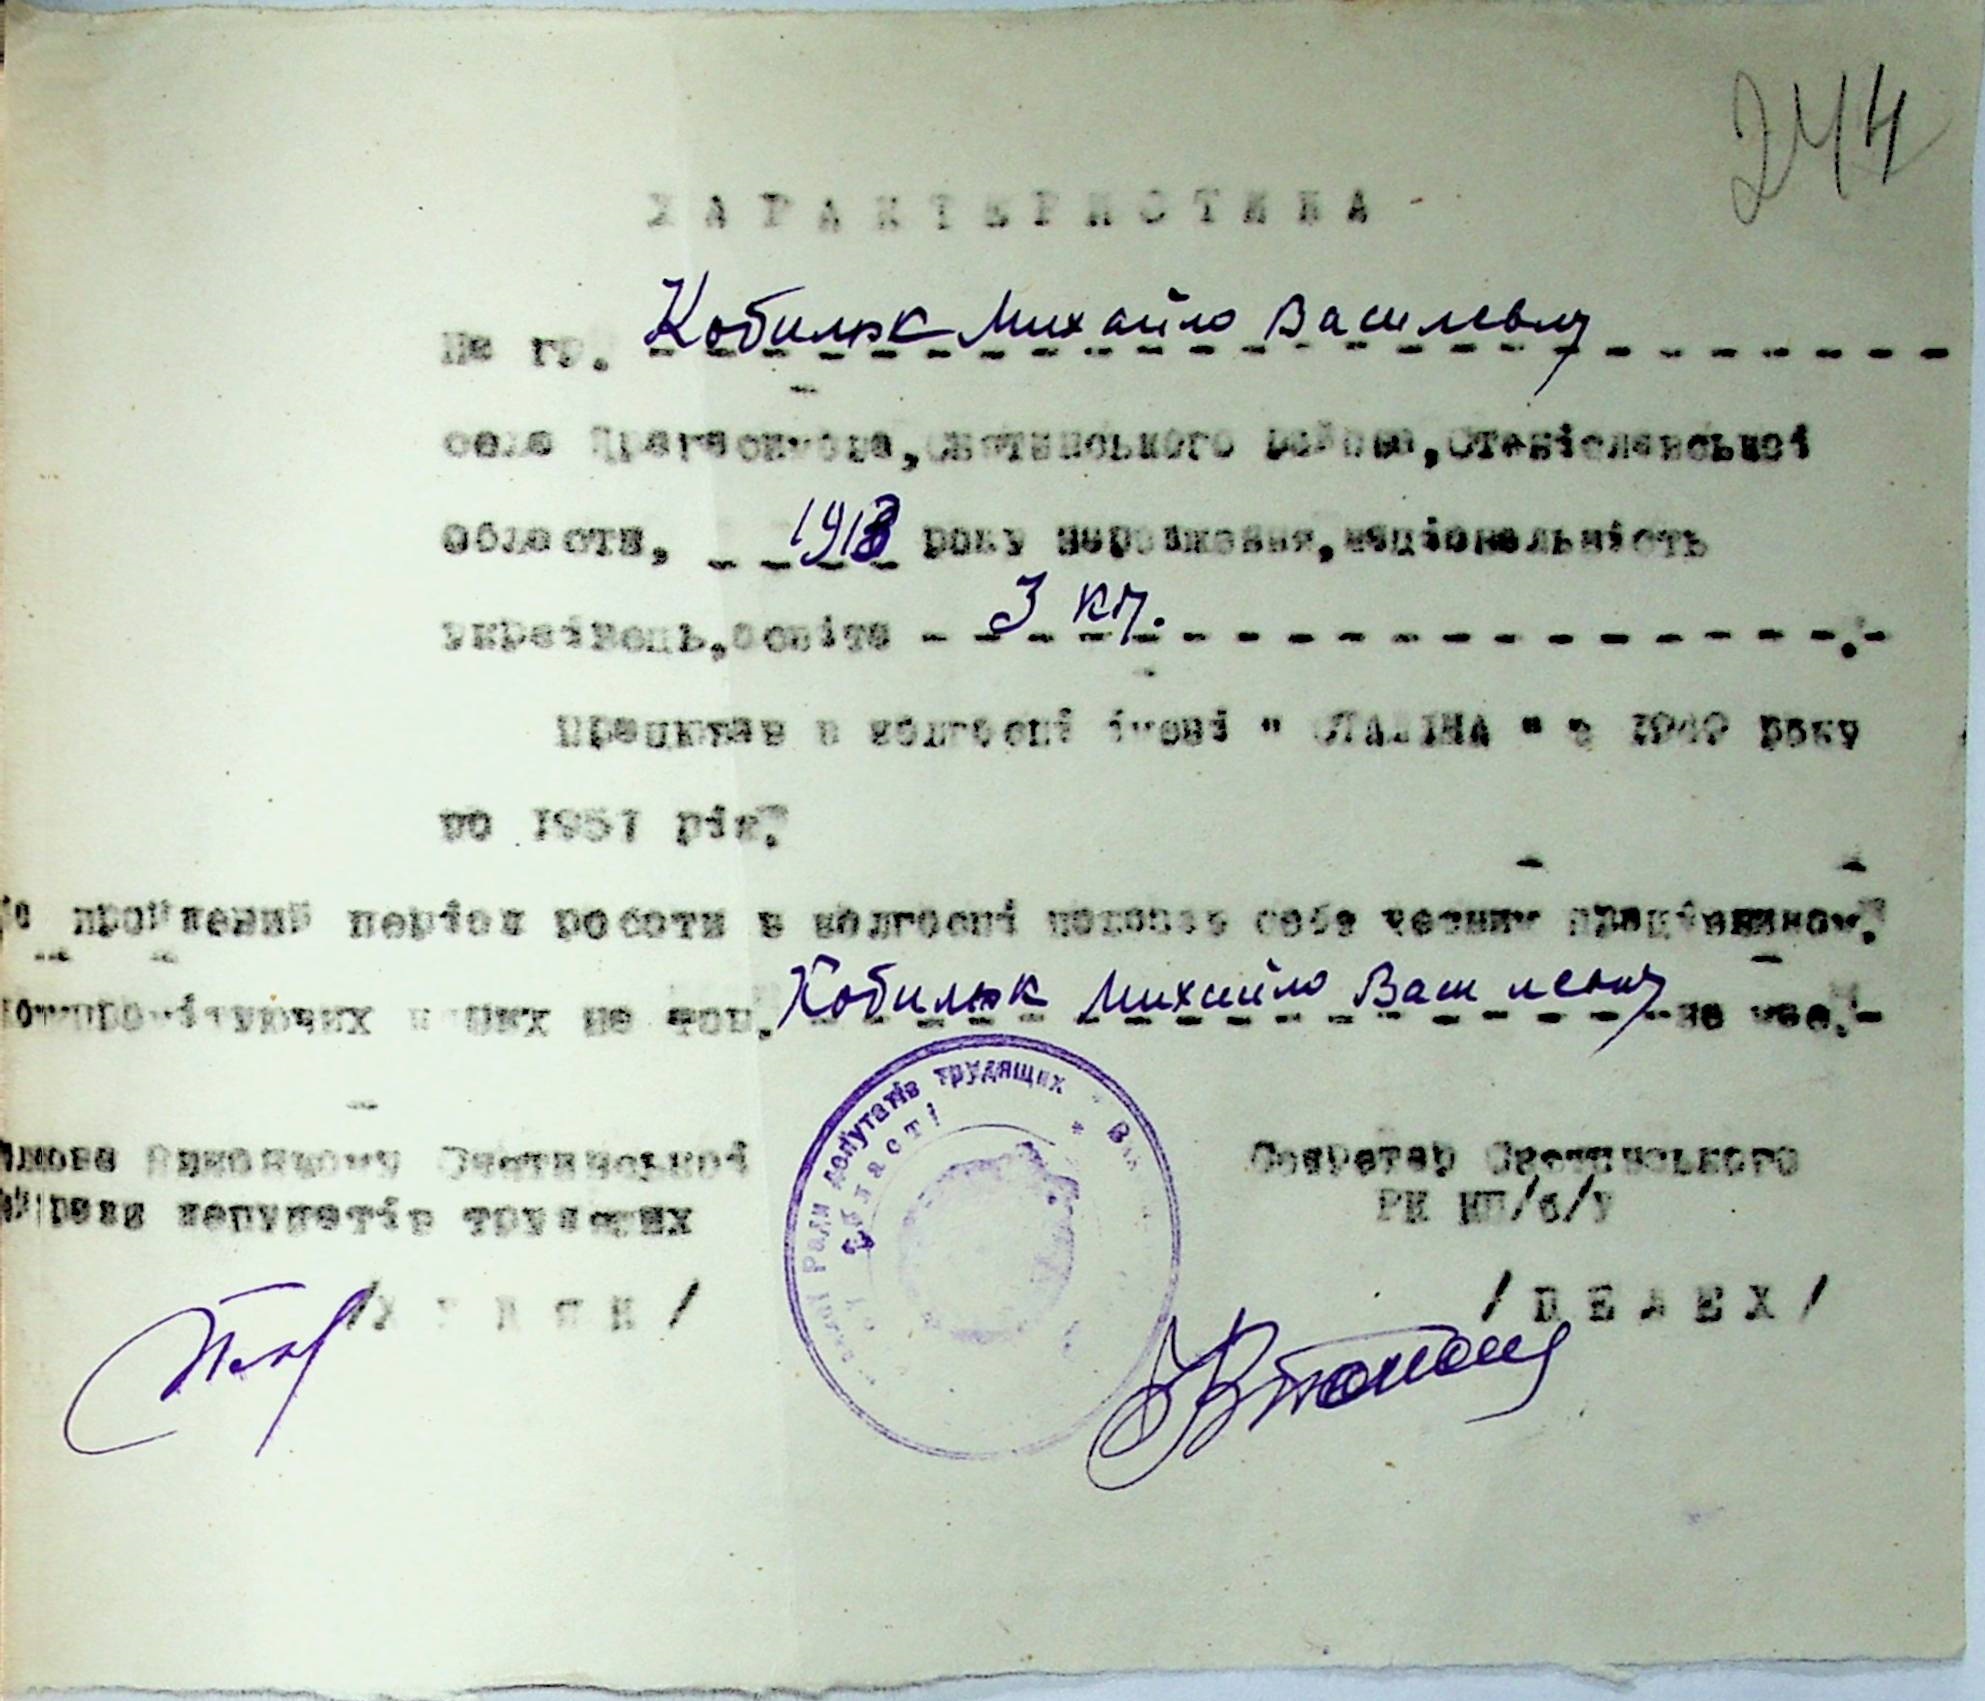 244
ХАРАКТЕРИСТИКА
На гр. Кобилюк Михайло Василевич
село Драгасимова, Снятинського району, Станіславської
області, 1913 року народження, національність
українець, освіта 3 кл.
Працював в колгоспі імені " СТАЛІНА " з 1949 року
по 1951 рік.
За проявлений період роботи в колгоспі показав себе чесним працівником.
Компромітуючих даних на тов. Кобилюк Михайло Василевич не має.
Голова Виконкому Снятинської
Райради депутатів трудящих
Секретар Снятинського
РК КП/б/У
/ ПЕЛЕХ /
Ради депутатів трудящих
області